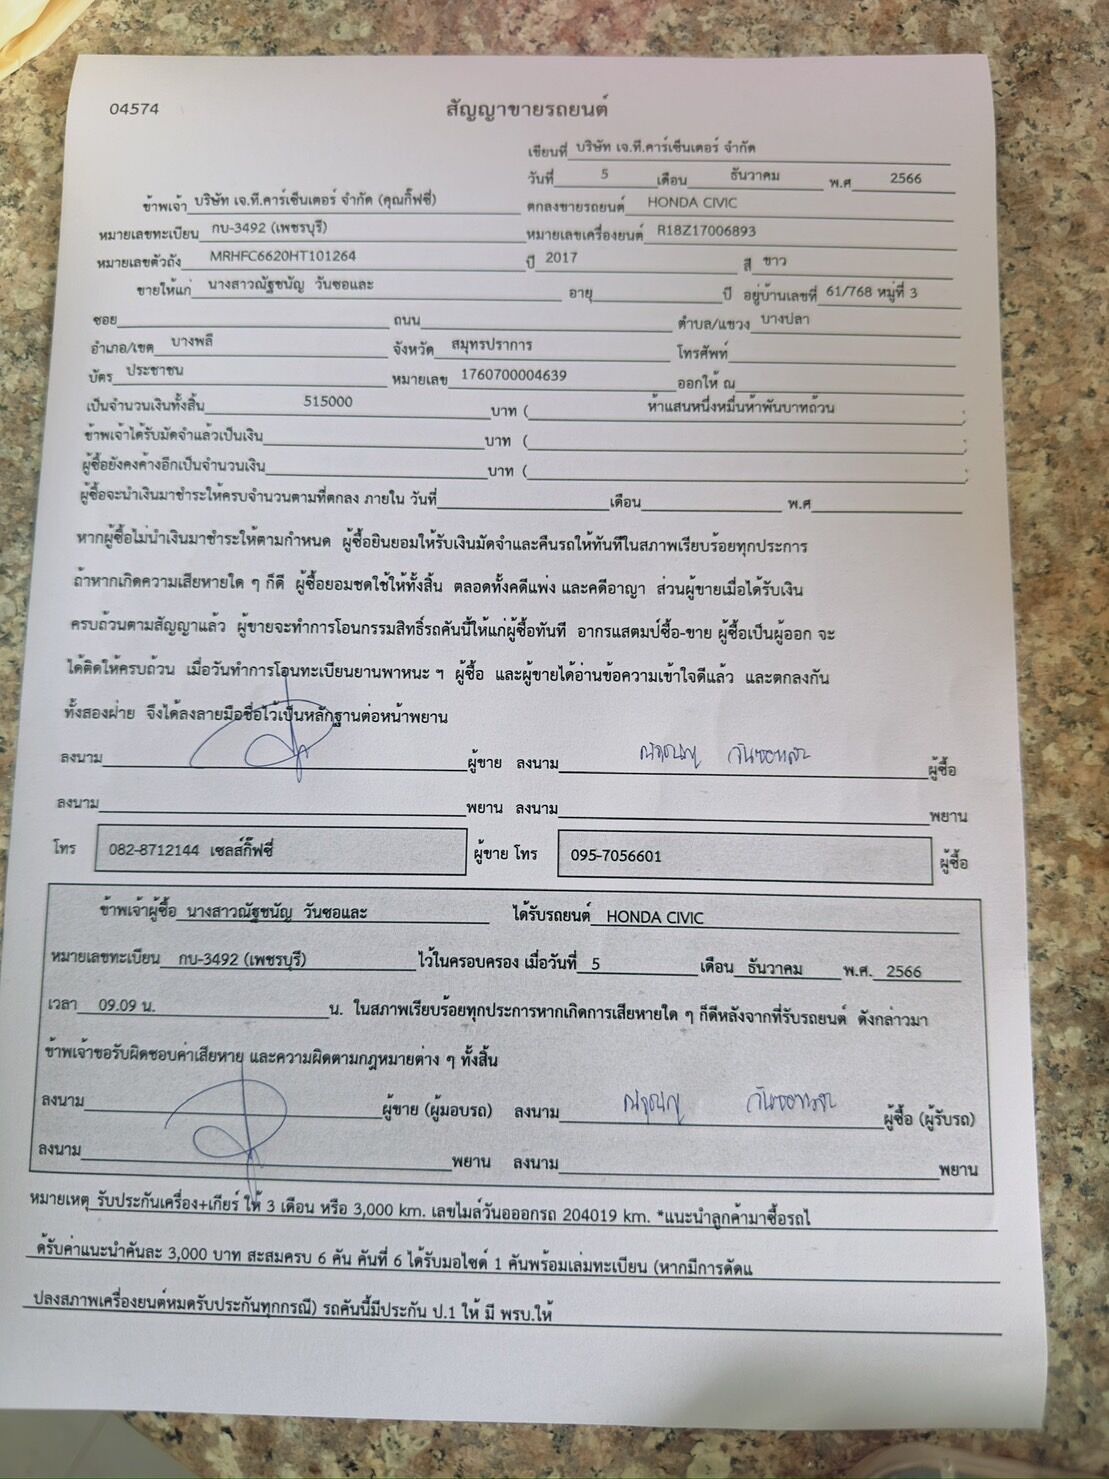 04574
สัญญาขายรถยนต์
เขียนที่ บริษัท เจ.ที.คาร์เซ็นเตอร์ จำกัด
วันที่ 5 เดือน ธันวาคม พ.ศ 2566
ข้าพเจ้า บริษัท เจ.ที.คาร์เซ็นเตอร์ จำกัด (คุณกิ๊ฟซี่) ตกลงขายรถยนต์ HONDA CIVIC
หมายเลขทะเบียน กบ-3492 (เพชรบุรี) หมายเลขเครื่องยนต์ R18Z17006893
หมายเลขตัวถัง MRHFC6620HT101264 ปี 2017 สี ขาว
ขายให้แก่ นางสาวณัฐชนัญ วันซอและ อายุ ปี อยู่บ้านเลขที่ 61/768 หมู่ที่ 3
ซอย ถนน ตำบล/แขวง บางปลา
อำเภอ/เขต บางพลี จังหวัด สมุทรปราการ โทรศัพท์
บัตร ประชาชน หมายเลข 1760700004639 ออกให้ ณ
เป็นจำนวนเงินทั้งสิ้น 515000 บาท ( ห้าแสนหนึ่งหมื่นห้าพันบาทถ้วน ;
ข้าพเจ้าได้รับมัดจำแล้วเป็นเงิน บาท ( ;
ผู้ซื้อยังคงค้างอีกเป็นจำนวนเงิน บาท ( ;
ผู้ซื้อจะนำเงินมาชำระให้ครบจำนวนตามที่ตกลง ภายใน วันที่ เดือน พ.ศ
หากผู้ซื้อไม่นำเงินมาชำระให้ตามกำหนด ผู้ซื้อยินยอมให้รับเงินมัดจำและคืนรถให้ทันทีในสภาพเรียบร้อยทุกประการ
ถ้าหากเกิดความเสียหายใด ๆ ก็ดี ผู้ซื้อยอมชดใช้ให้ทั้งสิ้น ตลอดทั้งคดีแพ่ง และคดีอาญา ส่วนผู้ขายเมื่อได้รับเงิน
ครบถ้วนตามสัญญาแล้ว ผู้ขายจะทำการโอนกรรมสิทธิ์รถคันนี้ให้แก่ผู้ซื้อทันที อากรแสตมป์ซื้อ-ขาย ผู้ซื้อเป็นผู้ออก จะ
ได้ติดให้ครบถ้วน เมื่อวันทำการโอนทะเบียนยานพาหนะ ฯ ผู้ซื้อ และผู้ขายได้อ่านข้อความเข้าใจดีแล้ว และตกลงกัน
ทั้งสองฝ่าย จึงได้ลงลายมือชื่อไว้เป็นหลักฐานต่อหน้าพยาน
ลงนาม ผู้ขาย ลงนาม ณัฐชนัญ วันซอและ ผู้ซื้อ
ลงนาม พยาน ลงนาม พยาน
โทร 082-8712144 เซลส์กิ๊ฟซี่ ผู้ขาย โทร 095-7056601 ผู้ซื้อ
ข้าพเจ้าผู้ซื้อ นางสาวณัฐชนัญ วันซอและ ได้รับรถยนต์ HONDA CIVIC
หมายเลขทะเบียน กบ-3492 (เพชรบุรี) ไว้ในครอบครอง เมื่อวันที่ 5 เดือน ธันวาคม พ.ศ. 2566
เวลา 09.09 น. น. ในสภาพเรียบร้อยทุกประการหากเกิดการเสียหายใด ๆ ก็ดีหลังจากที่รับรถยนต์ ดังกล่าวมา
ข้าพเจ้าขอรับผิดชอบค่าเสียหาย และความผิดตามกฎหมายต่าง ๆ ทั้งสิ้น
ลงนาม ผู้ขาย (ผู้มอบรถ) ลงนาม ณัฐชนัญ วันซอและ ผู้ซื้อ (ผู้รับรถ)
ลงนาม พยาน ลงนาม พยาน
หมายเหตุ รับประกันเครื่อง+เกียร์ ให้ 3 เดือน หรือ 3,000 km. เลขไมล์วันอออกรถ 204019 km. *แนะนำลูกค้ามาซื้อรถไ
ด้รับค่าแนะนำคันละ 3,000 บาท สะสมครบ 6 คัน คันที่ 6 ได้รับมอไซด์ 1 คันพร้อมเล่มทะเบียน (หากมีการดัดแ
ปลงสภาพเครื่องยนต์หมดรับประกันทุกกรณี) รถคันนี้มีประกัน ป.1 ให้ มี พรบ.ให้